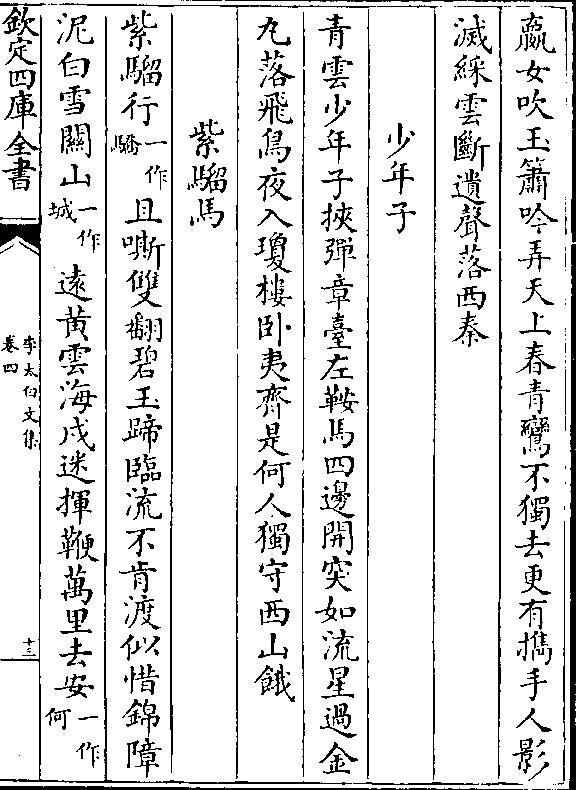 嬴女吹玉簫吟弄天上春青鸞不獨去更有攜手人影
滅綵雲斷遺聲落西秦
少年子
青雲少年子挾彈章臺左鞍馬四邊開突如流星過金
丸落飛鳥夜入瓊樓卧夷齊是何人獨守西山餓
紫騮馬
紫騮行一作驕且嘶雙翻碧玉蹄臨流不肯渡似惜錦障
泥白雪關山一作城遠黄雲海戍迷揮鞭萬里去安一作何
欽定四庫全書
李太白文集
卷四
十三